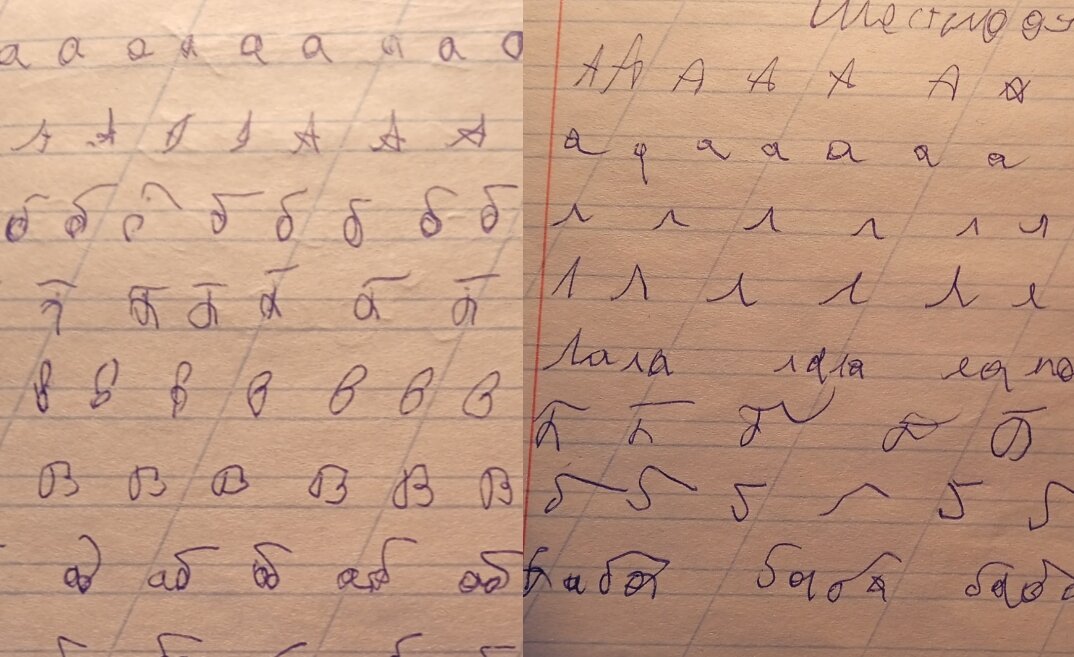 а а а а а а а а а
А А А А А А А
б б б б б б б
Б Б Б Б Б Б
в в в в в в в
В В В В В В
аб аб аб аб аб
А А А А А А А
а а а а а а а
л л л л л л
Л Л Л Л Л Л
Лала лала
Б Б Б Б Б
б б б б б
Баба баба баба